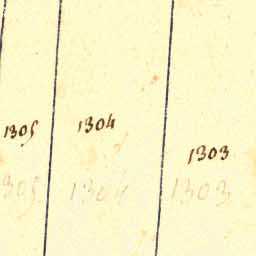 1305 1304 1303
305 1304 1303